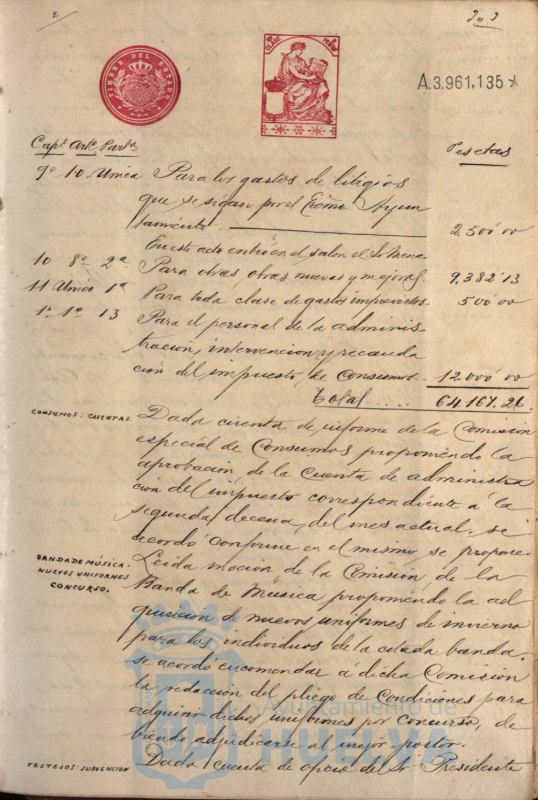 2
202
TIMBRE DEL ESTADO
CLASE PESETA
A.3.961,135
Capº Artº Partª Pesetas
9º 10 Unica Para los gastos de litigios
que se sigan por el Excmo Ayun
tamiento. 2.500'00
En este acto entró en el salon el Sr Mena
10 8º 2ª Para obras, obras nuevas y mejoras. 9,382'13
11 Unico 1ª Para toda clase de gastos imprevistos. 500'00
1º 1º 13 Para el personal de la adminis-
tración, intervencion y recauda
ción del impuesto de Consumos.. 12.000'00
Total..... 64.167.26
CONSUMOS: CUENTAS. Dada cuenta de informe de la Comisión
especial de Consumos proponiendo la
aprobación de la Cuenta de administra
ción del impuesto correspondiente á la
segunda decena, del mes actual, se
acordó conforme en el mismo se propone.
BANDA DE MÚSICA: NUEVOS UNIFORMES CONCURSO. Leida mocion de la Comisión de la
Banda de Música proponiendo la ad
quisicion de nuevos uniformes de invierno
para los individuos de la citada banda,
se acordó encomendar á dicha Comisión
la redacción del pliego de Condiciones para
adquirir dichos uniformes por Concurso, de
biendo adjudicarse al mejor postor.
FESTEJOS: SUBVENCION Dada cuenta de oficio del Sr. Presidente
Ayuntamiento de
HUELVA